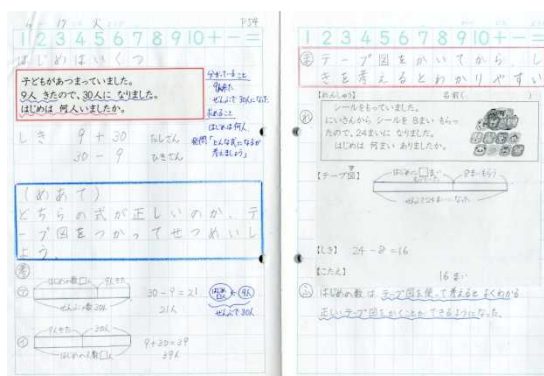 4 17 火 P54
1 2 3 4 5 6 7 8 9 10 + - =
はじめはいくつ
子どもがあつまっていました。
9人 きたので、30人に なりました。
はじめは 何人いましたか。
分かっていること
9人きた
ぜんぶで30人になった
求めること
はじめは何人
発問「どんな式になるか
考えましょう」
しき 9+30 たしざん
30-9 ひきざん
(めあて)
どちらの式が正しいのか、テ
ープ図をつかってせつめいし
よう。
考
はじめの数□人 9人きた
ぜんぶの数30人
30-9=21
21人
はじめ
□人
9人
ぜんぶで30人
9人きた 30人
はじめの人数□人
9+30=39
39人
1 2 3 4 5 6 7 8 9 10 + - =
テープ図をかいてから、し
きを考えるとわかりやすい
【れんしゅう】 名前( )
シールをもっていました。
にいさんから シールを 8まい もらっ
たので、24まいに なりました。
はじめは 何まい ありましたか。
【テープ図】
はじめ□まい 8まいもらう
ぜんぶで24まい なった
【しき】 24-8=16
【こたえ】 16まい
ふ はじめの数は テープ図を使って考えると よくわかる
正しいテープ図をかくことが できるようになった。